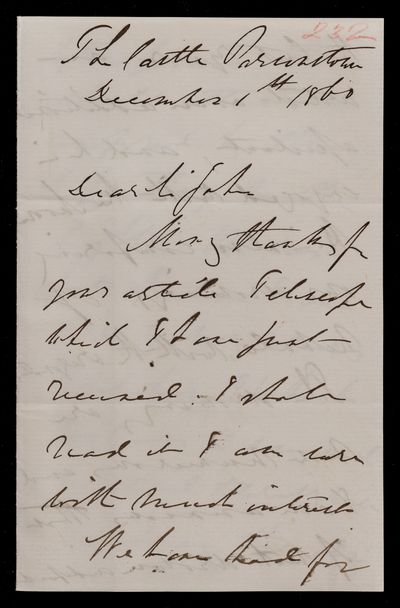 232
The Castle Parsonstown
December 1th 1860
Dear Sir John
Many thanks for
your article Telescope
which I have just
received. I shall
read it I am sure
with much interest
We have had for